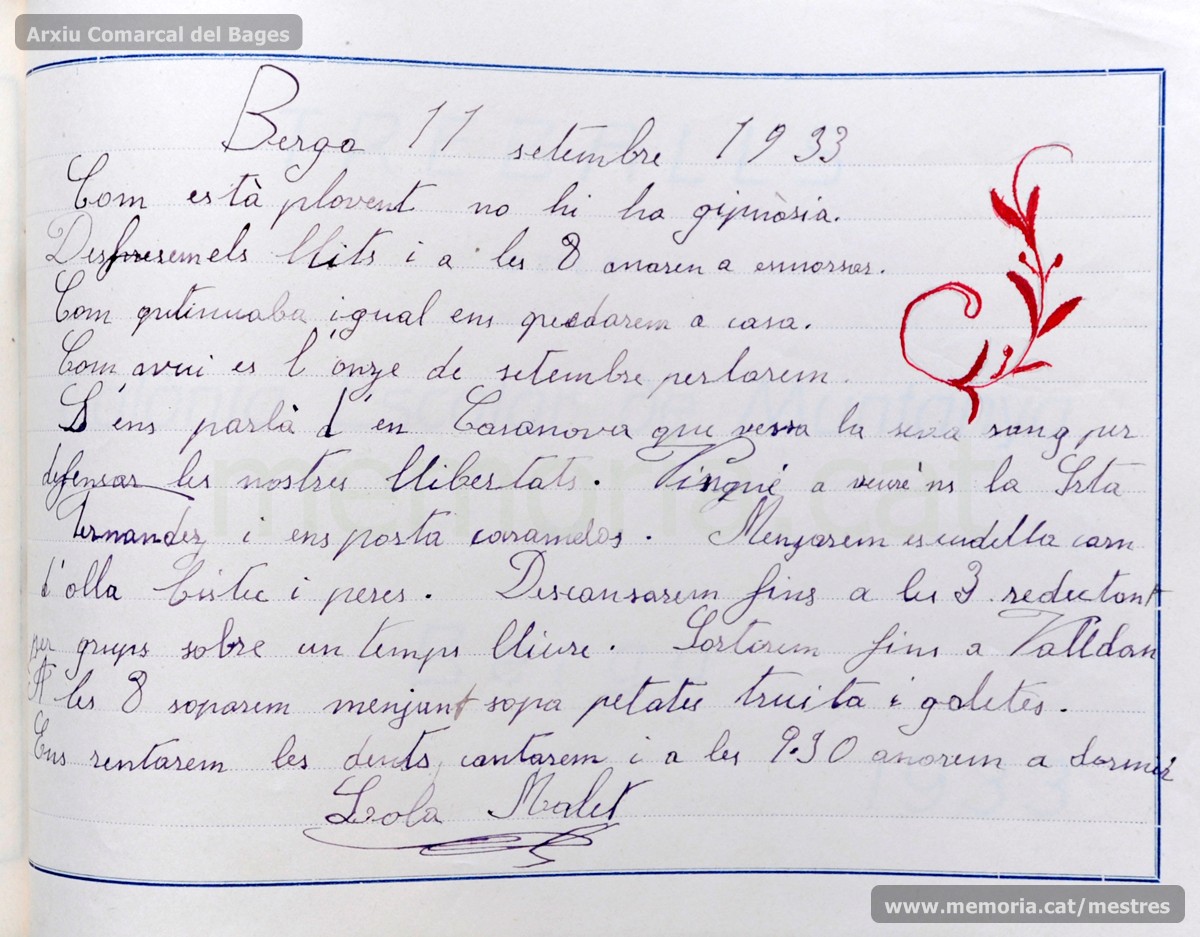 Arxiu Comarcal del Bages
Berga 11 setembre 1933
Com està plovent no hi ha gipnòsia.
els llits i a les 8 anarem a esmorsar.
Com qutinuaba igual ens quedarem a casa.
Com avui es l'onze de setembre perlarem.
S'ens parlà d'en Casanova que vessa la seva sang per
defensar les nostres llibertats. Vingué a veure'ns la Srta
Fernandez i ens porta caramelos. Menjarem escudella carn
d'olla bistec i peres. Descansarem fins a les 3 redectant
per grups sobre un temps lliure. Sortirem fins a Valldan
A les 8 soparem menjant sopa petates truita i galetes.
Ens rentarem les dents, cantarem i a les 9.30 anarem a dormir
Lola Malet
memoria.cat
www.memoria.cat/mestres